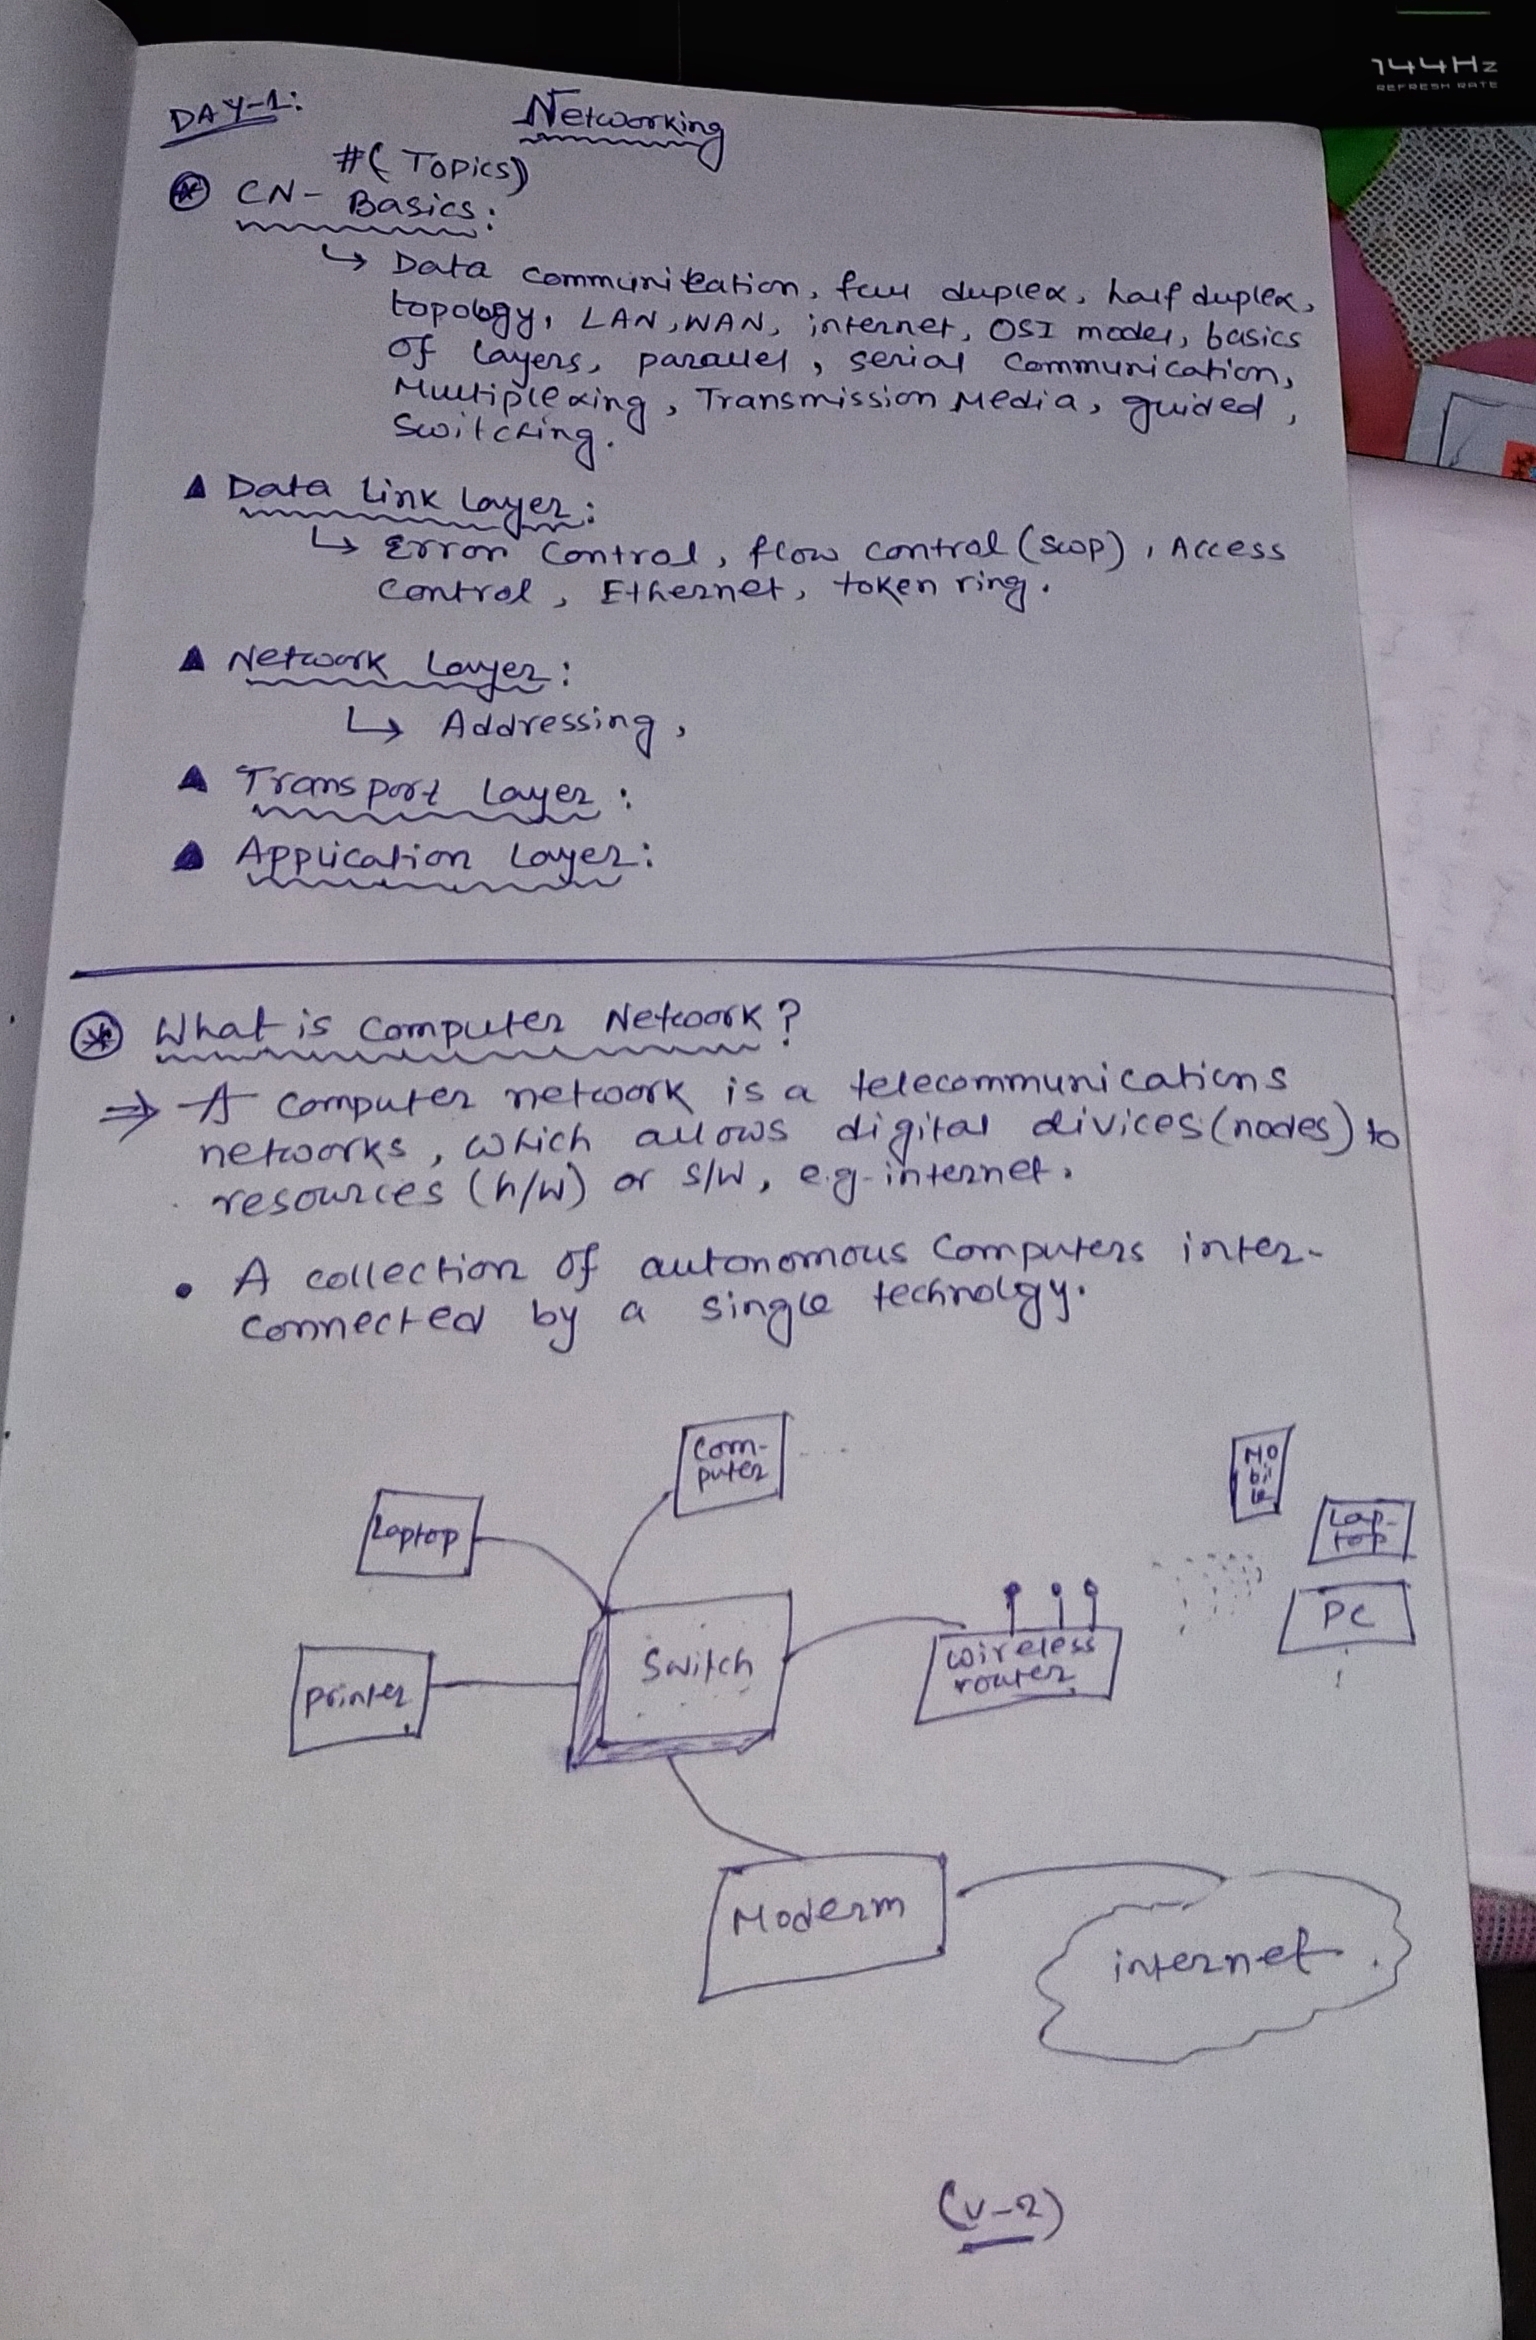 144Hz
REFRESH RATE
DAY-1:
Networking
#(Topics)
CN- Basics:
↳ Data communication, full duplex, half duplex,
topology, LAN, WAN, internet, OSI model, basics
of layers, parallel, serial communication,
Multiplexing, Transmission Media, guided,
Switching.
▲ Data Link Layer:
↳ Error control, flow control (swp), Access
control, Ethernet, token ring.
▲ Network Layer:
↳ Addressing,
▲ Transport Layer:
▲ Application Layer:
What is computer Network?
⇒ A computer network is a telecommunications
networks, which allows digital divices (nodes) to
resources (h/w) or s/w, e.g. internet.
• A collection of autonomous computers inter-
connected by a single technolgy.
Com-
puter
Mo
bil
le
Laptop
Lap-
top
PC
Switch
wireless
router
printer
Moderm
internet
(V-2)